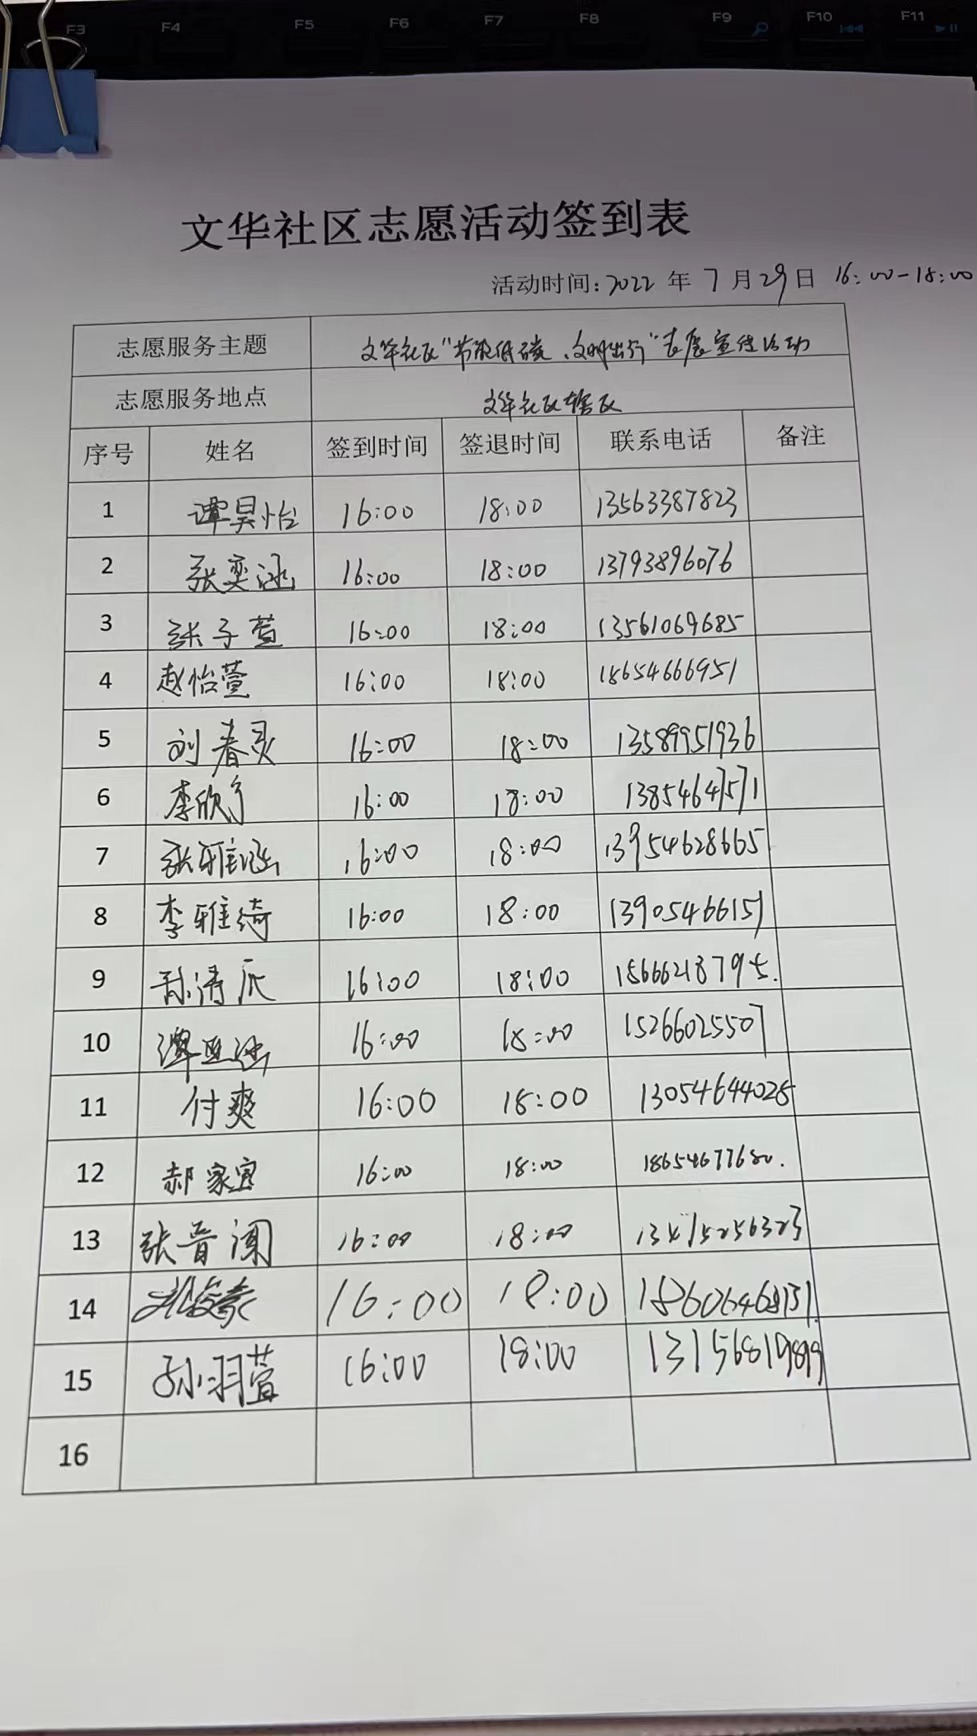 F3 F4 F5 F6 F7 F8 F9 F10 F11
文华社区志愿活动签到表
活动时间:2022 年 7 月 29 日 16:00-18:00
志愿服务主题 文华社区"节能低碳、文明出行"志愿宣传活动
志愿服务地点 文华社区辖区
序号 姓名 签到时间 签退时间 联系电话 备注
1 谭昊怡 16:00 18:00 13563387823
2 张奕涵 16:00 18:00 13793896076
3 张子萱 16:00 18:00 13561069685
4 赵怡萱 16:00 18:00 18654666951
5 刘春灵 16:00 18:00 13589951936
6 李欣 16:00 18:00 13854647571
7 张雅涵 16:00 18:00 13954628665
8 李雅绮 16:00 18:00 13905466151
9 孙 16:00 18:00 18666218795.
10 谭亚涵 16:00 18:00 15266025507
11 付爽 16:00 18:00 13054644028
12 郝家宜 16:00 18:00 18654677680.
13 张晋阁 16:00 18:00 13475256323
14 16:00 18:00
15 孙羽萱 16:00 18:00 13156819899
16